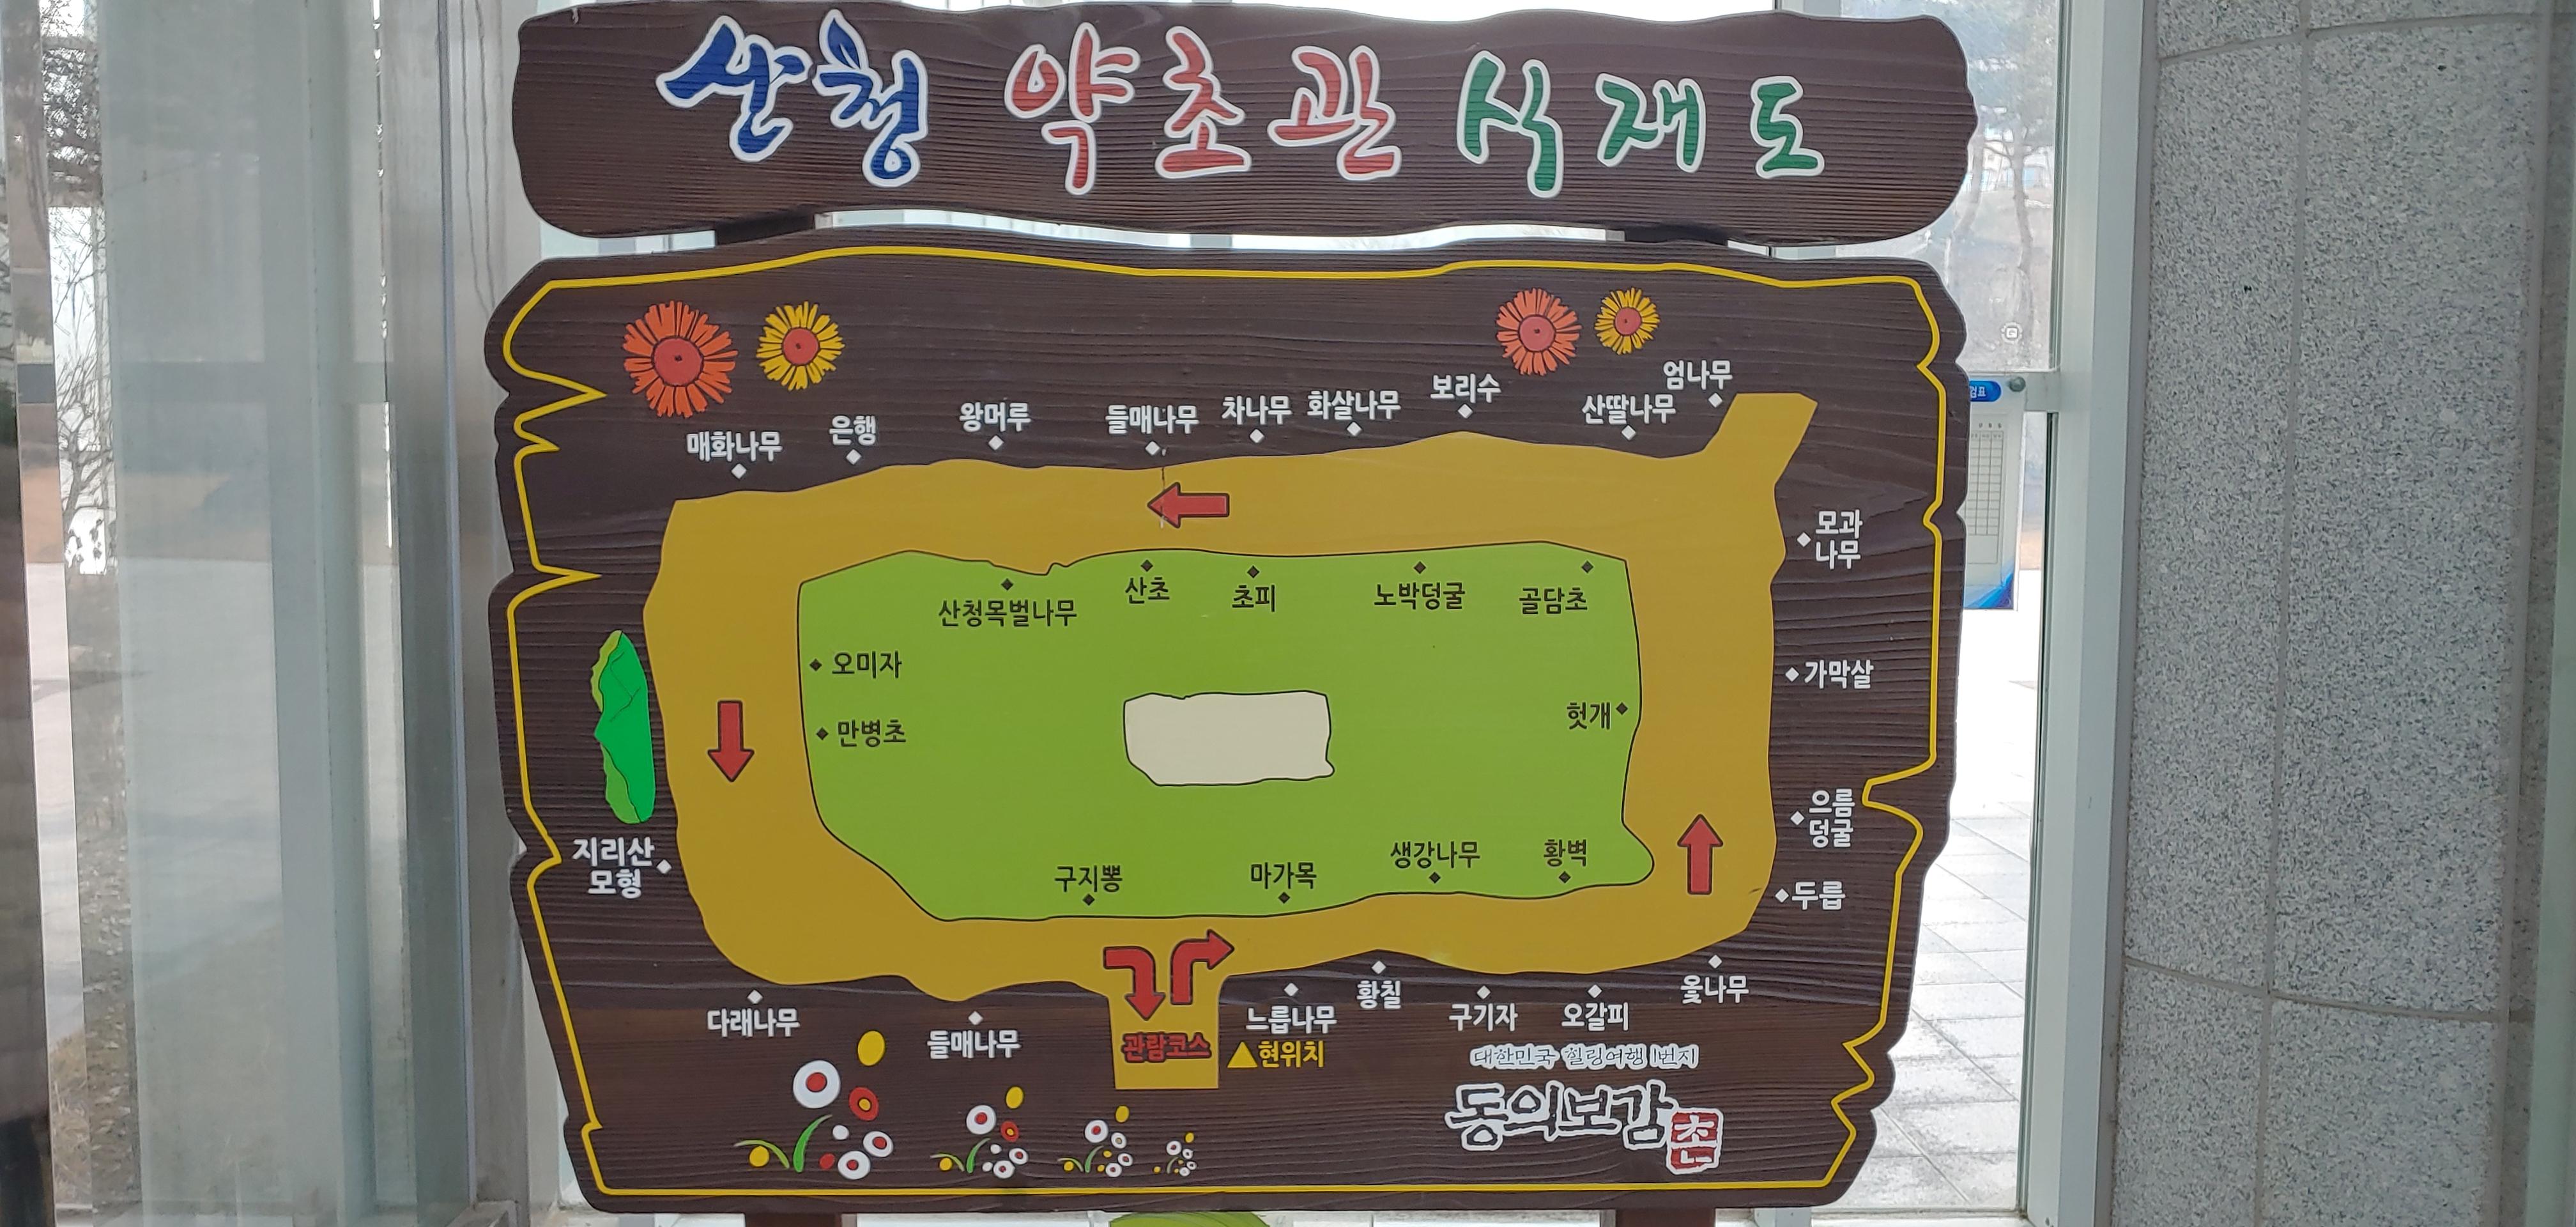 산청 약초관 식재도
엄나무
보리수
산딸나무
화살나무
차나무
들매나무
왕머루
은행
매화나무
모과
나무
산청목벌나무
산초
초피
노박덩굴
골담초
오미자
가막살
헛개
만병초
으름
덩굴
지리산
모형
구지뽕
마가목
생강나무
황벽
두릅
다래나무
들매나무
관람코스
▲현위치
느릅나무
황칠
구기자
오갈피
옻나무
대한민국 힐링여행 1번지
동의보감촌